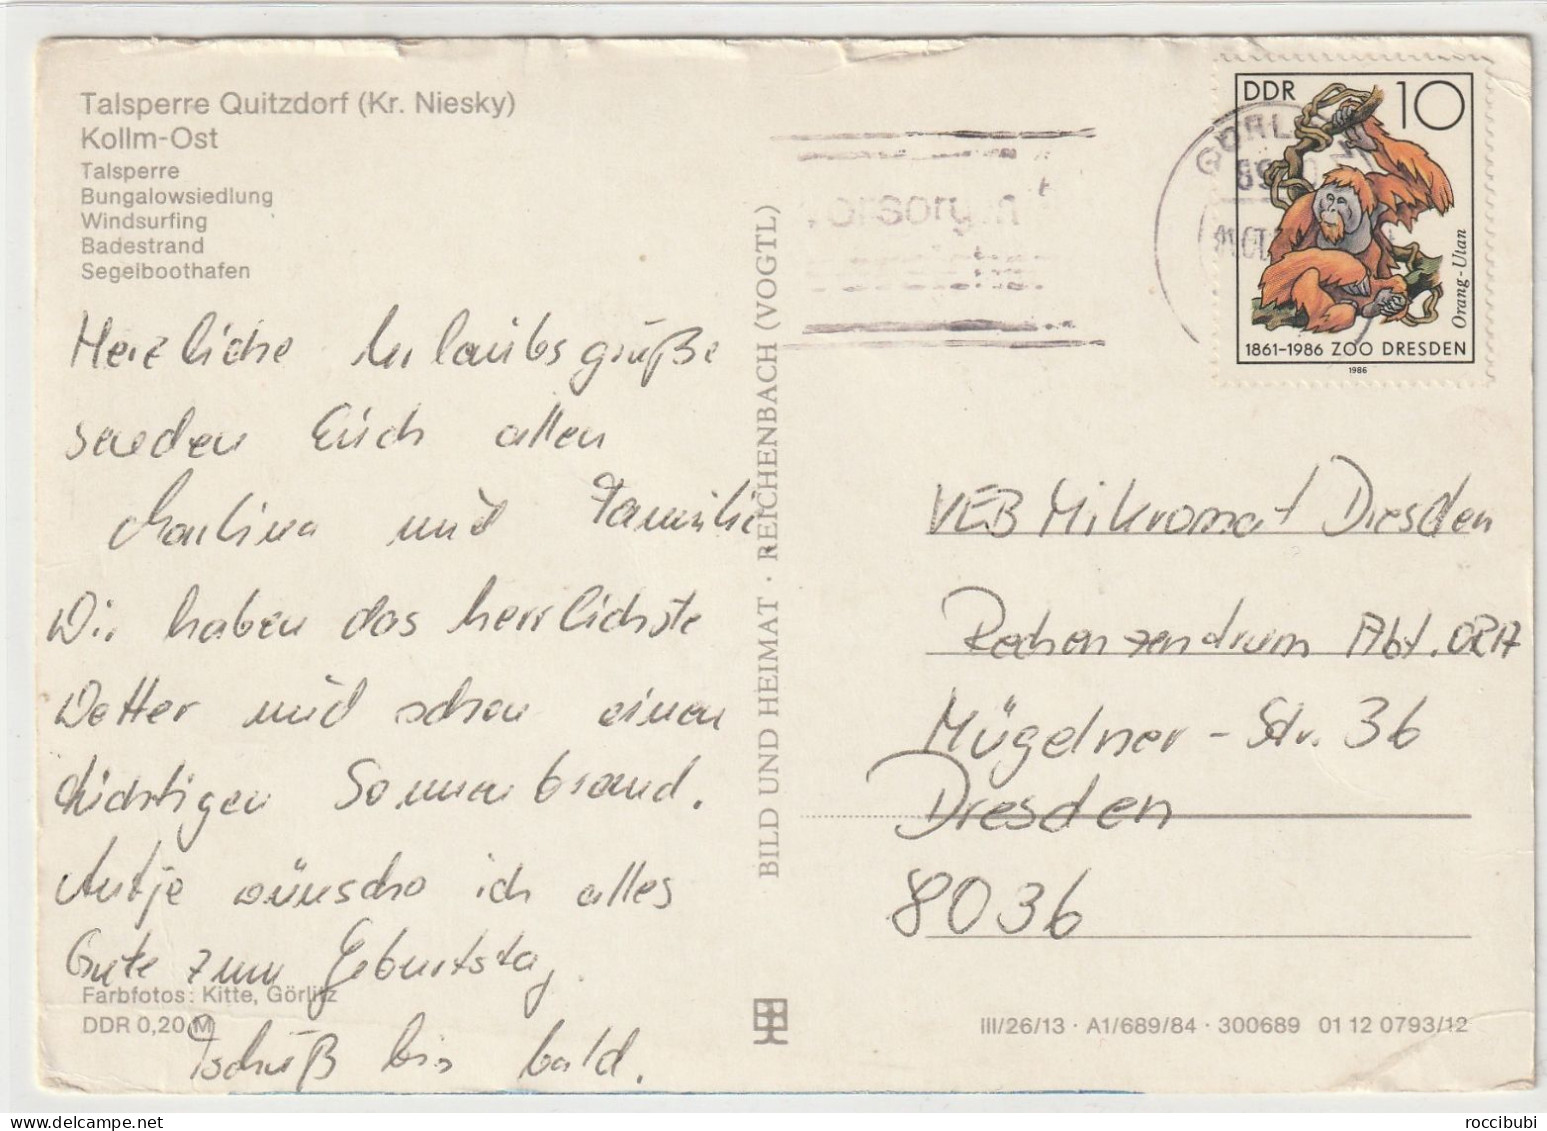 Talsperre Quitzdorf (Kr. Niesky)
Kollm-Ost
Talsperre
Bungalowsiedlung
Windsurfing
Badestrand
Segelboothafen
Herzliche Urlaubsgrüße
senden Euch allen
Martina und Familie
Wir haben das herrlichste
Wetter und schon einen
tüchtigen Sonnenbrand.
Antje wünsche ich alles
Gute zum Geburtstag
Farbfotos: Kitte, Görlitz
DDR 0,20 M
Tschüß bis bald.
BILD UND HEIMAT · REICHENBACH (VOGTL)
GÖRL
89
DDR 10
Orang-Utan
1861-1986 ZOO DRESDEN
1986
VEB Mikromat Dresden
Rechenzendrum Abt. ORA
Mügelner-Str. 36
Dresden
8036
III/26/13 · A1/689/84 · 300689 01 12 0793/12
roccibubi